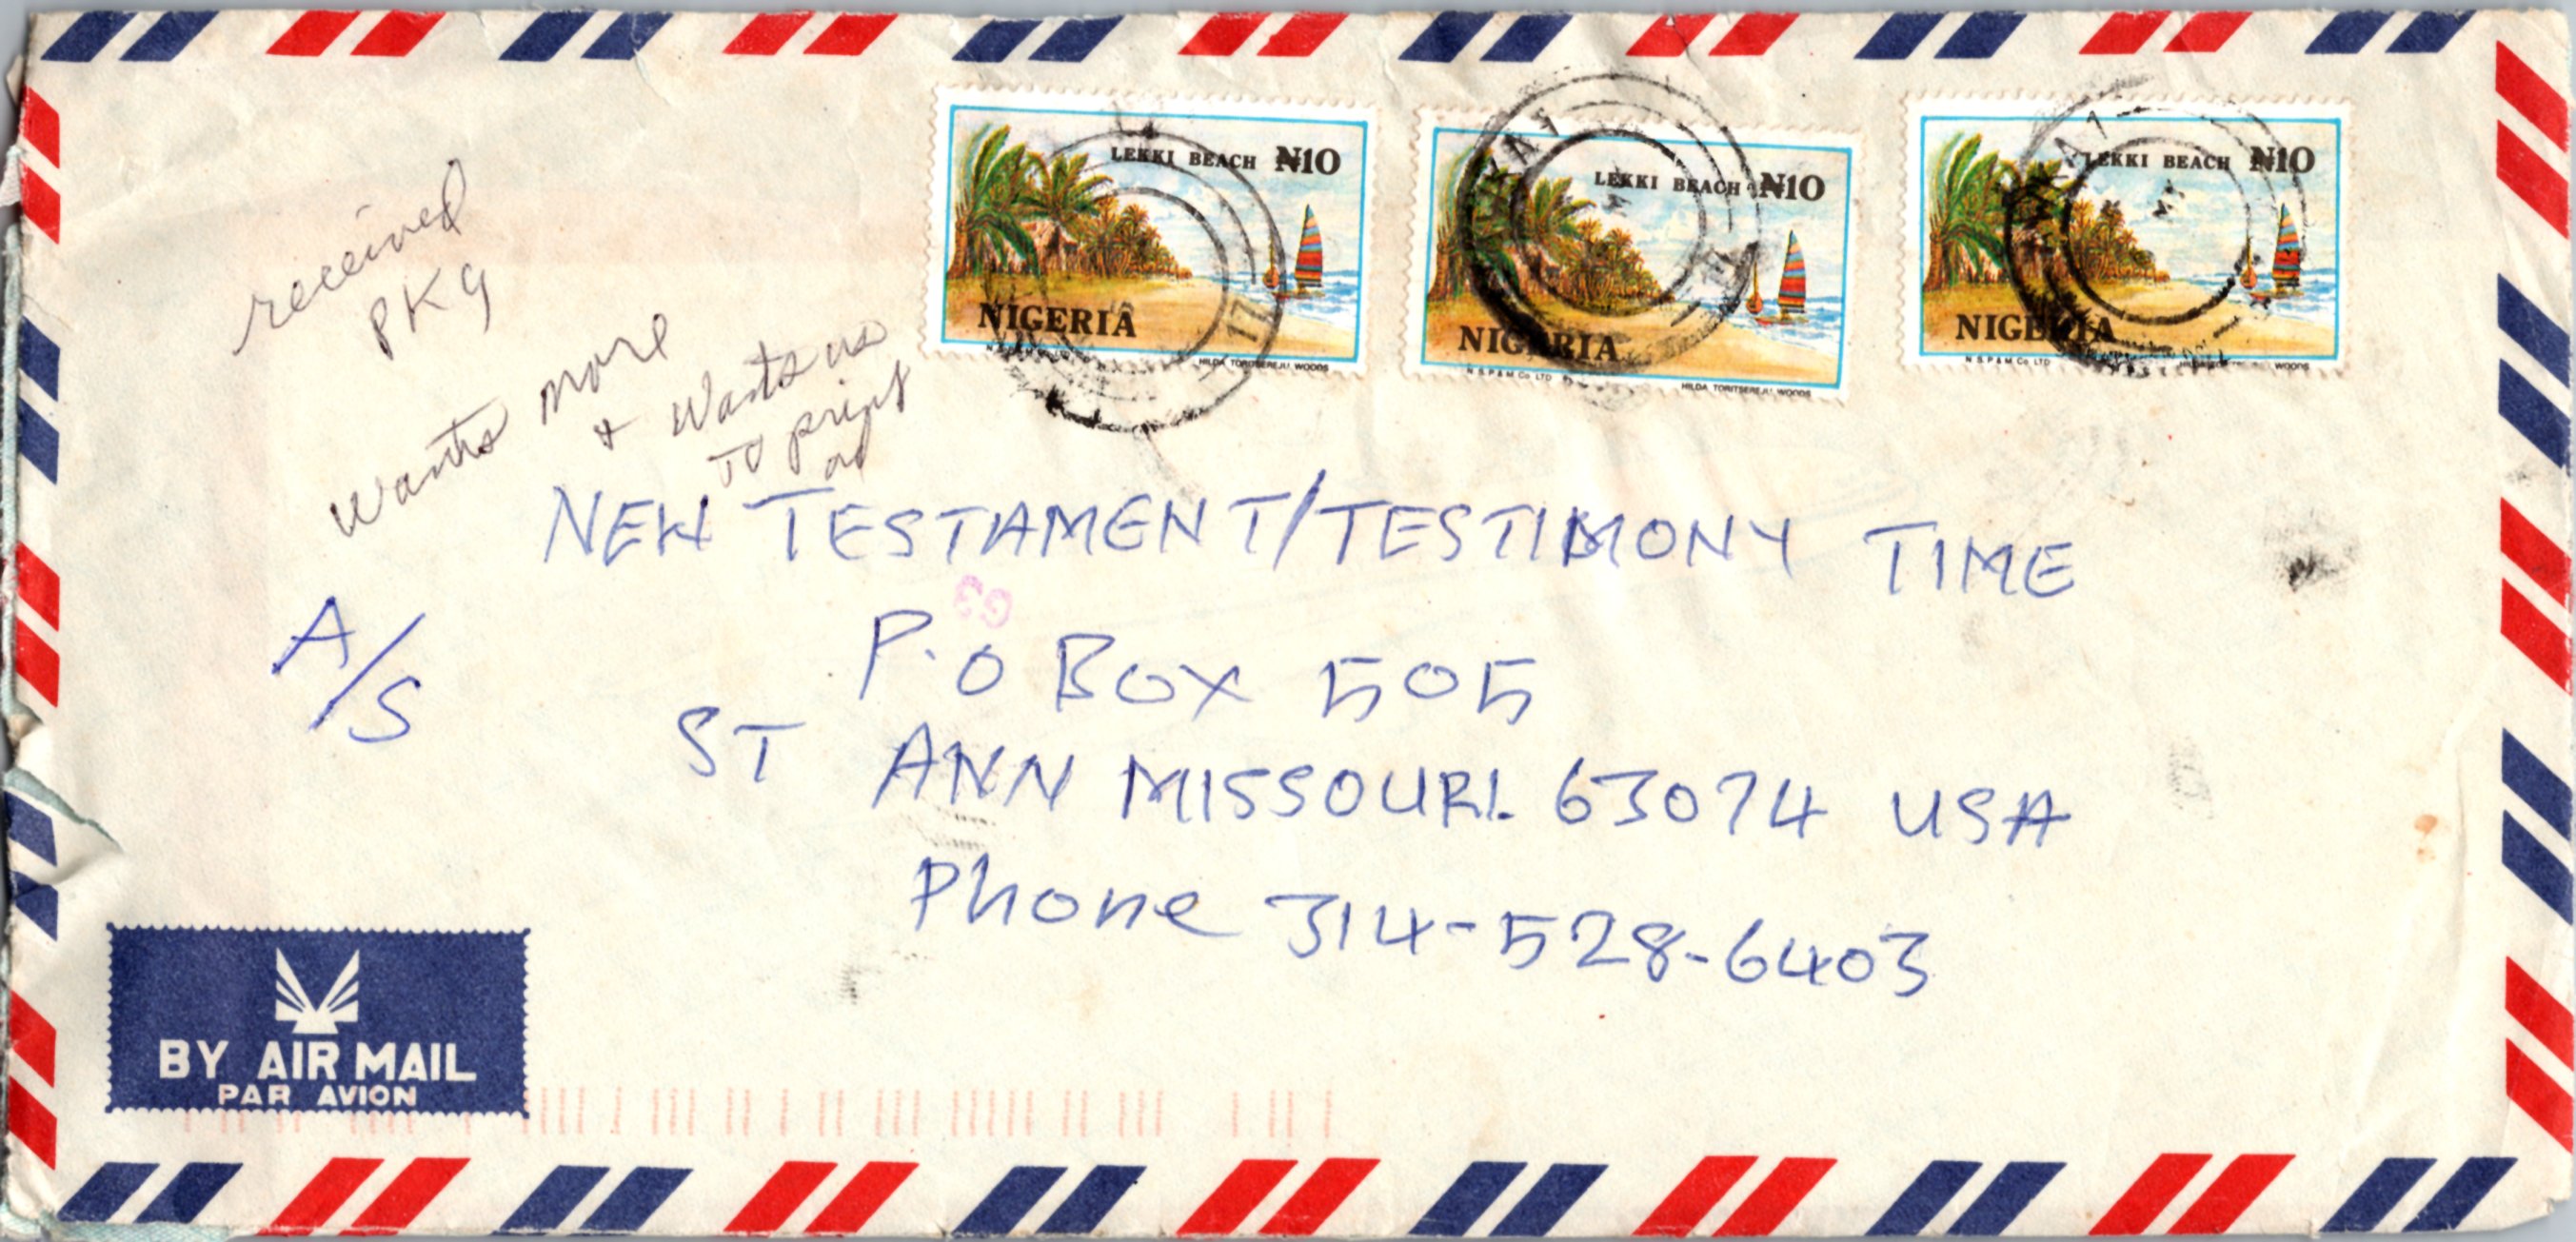 LEKKI BEACH ₦10
NIGERIA
HILDA TORITSEREJU WOODS
LEKKI BEACH ₦10
NIGERIA
N.S.P.& M. Co. LTD
HILDA TORITSEREJU WOODS
LEKKI BEACH ₦10
NIGERIA
N.S.P.& M. Co. LTD
WOODS
received
PKg
wants more
& wants us
to print
ad
NEW TESTAMENT/TESTIMONY TIME
G3
A/S
P.O BOX 505
ST ANN MISSOURI. 63074 USA
Phone 314-528-6403
BY AIR MAIL
PAR AVION